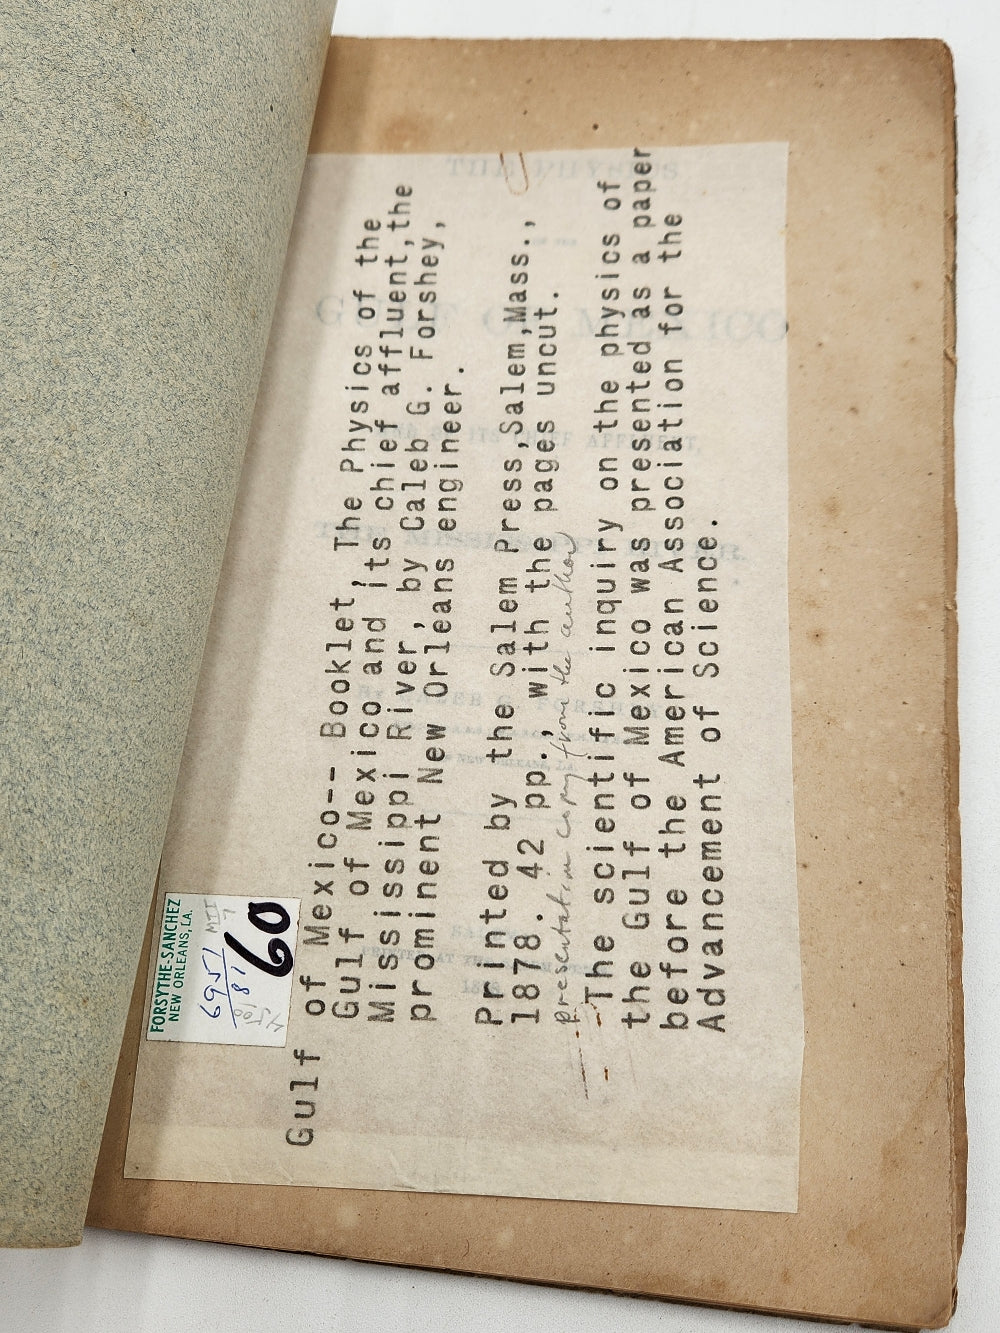 Gulf of Mexico-- Booklet, The Physics of the
Gulf of Mexico and its chief affluent, the
Mississippi River, by Caleb G. Forshey,
prominent New Orleans engineer.
Printed by the Salem Press, Salem, Mass.,
1878. 42 pp., with the pages uncut.
presentation copy from the author
The scientific inquiry on the physics of
the Gulf of Mexico was presented as a paper
before the American Association for the
Advancement of Science.
FORSYTHE-SANCHEZ
NEW ORLEANS, LA.
MII
7
6951
81
4500
60
THE PHYSICS
OF THE
GULF OF MEXICO
AND OF ITS CHIEF AFFLUENT,
THE MISSISSIPPI RIVER.
By CALEB G. FORSHEY
NEW ORLEANS, LA.
PRINTED AT THE SALEM PRESS
1878